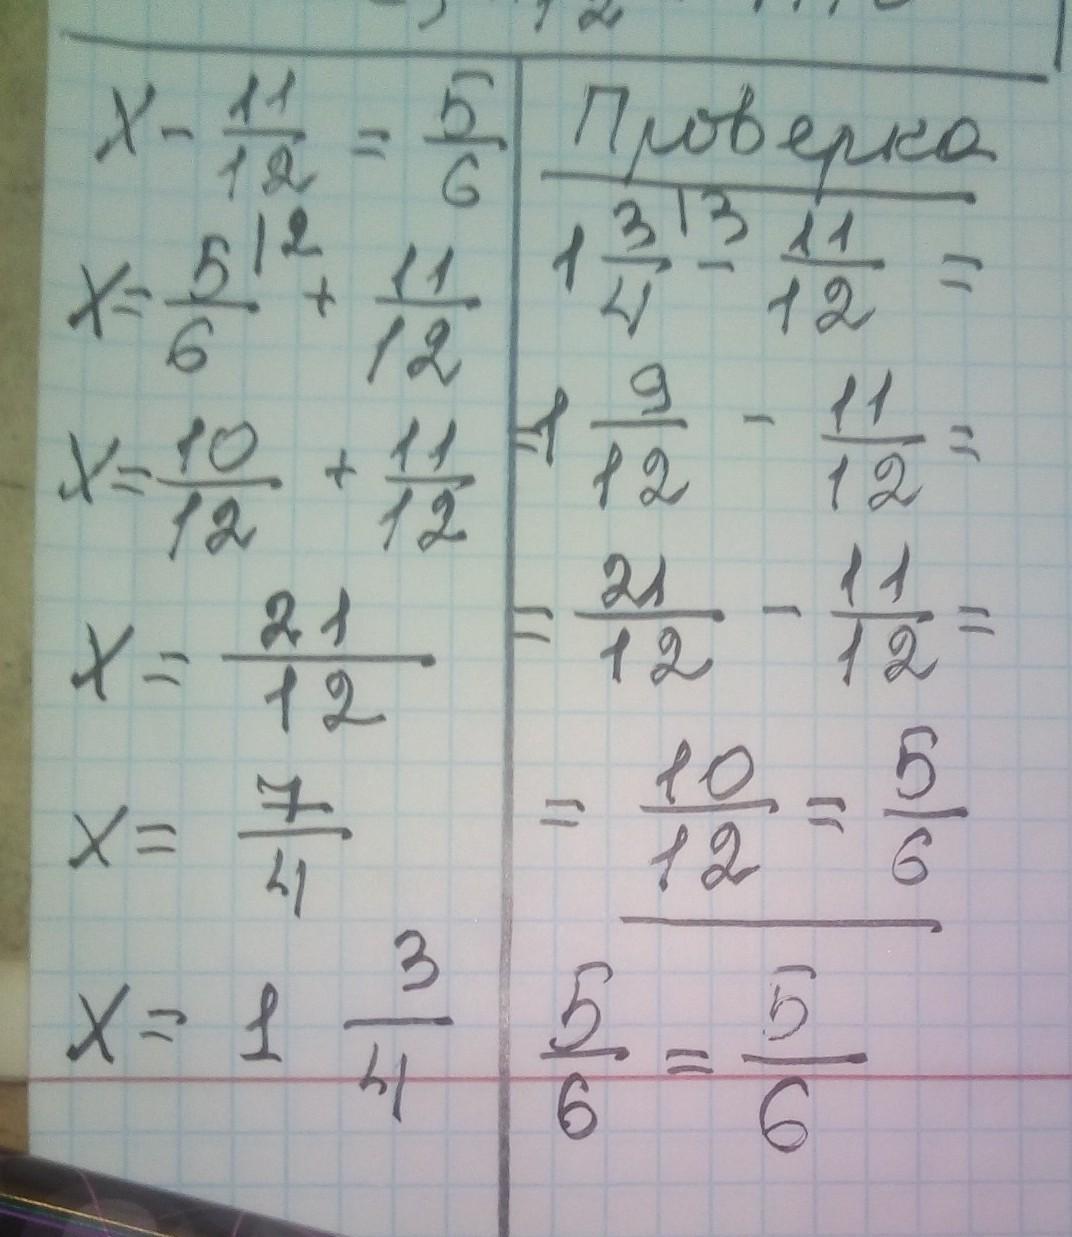 x - 11/12 = 5/6
x = 5/6 |2 + 11/12
x = 10/12 + 11/12
x = 21/12
x = 7/4
x = 1 3/4
Проверка
1 3/4 |3 - 11/12 =
= 1 9/12 - 11/12 =
= 21/12 - 11/12 =
= 10/12 = 5/6
5/6 = 5/6